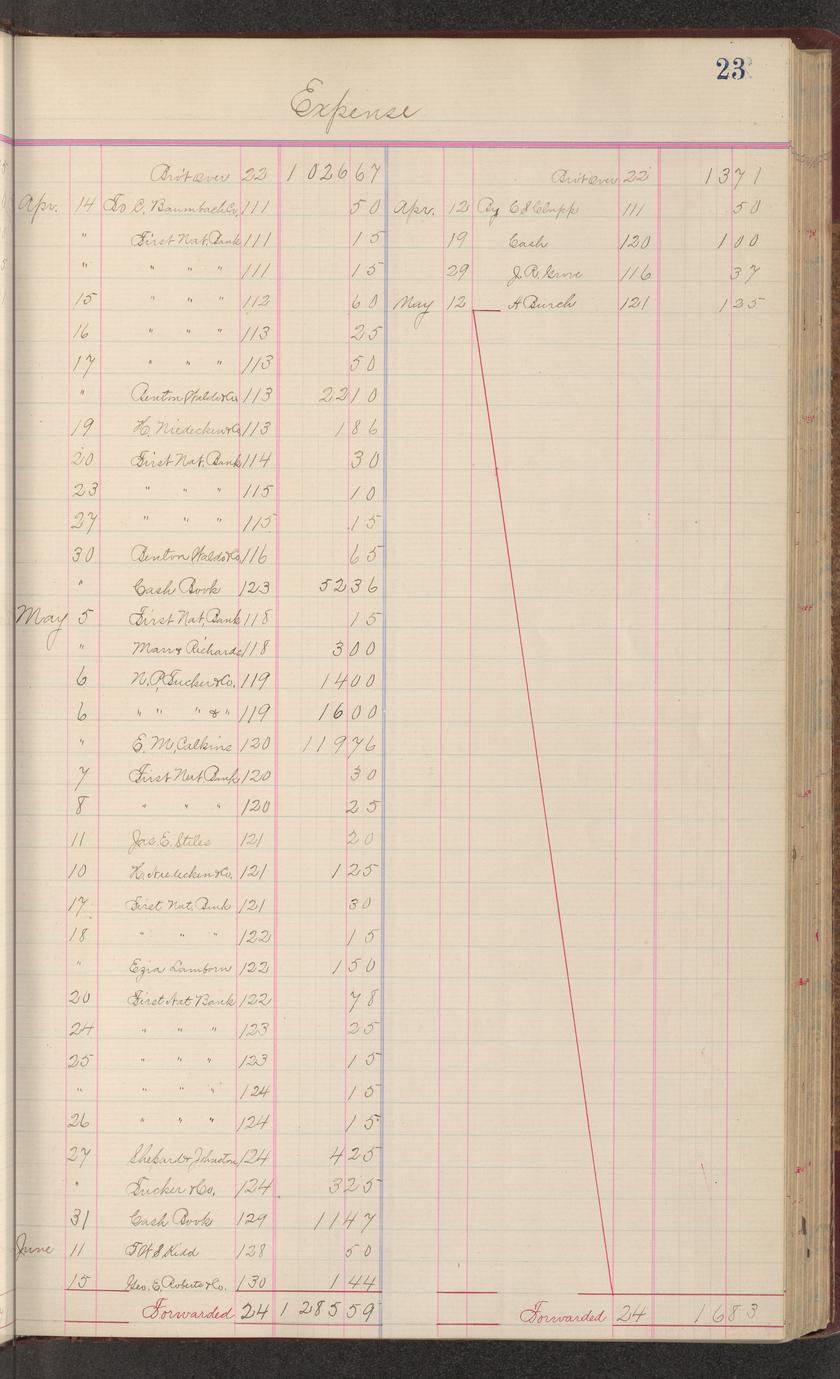 23
Expense
Bro't over 22 1 026 67 Bro't over 22 13 71
Apr. 14 To C. Baumbach Co 111 50 Apr. 12 By C & Clapp 111 50
" First Nat. Bank 111 15 19 Cash 120 1 00
" " " " 111 15 29 J. R. Grove 116 37
15 " " " 112 60 May 12 A Burch 121 1 25
16 " " " 113 25
17 " " " 113 50
" Benton Waldo & Co 113 22 10
19 H. Niedecken & Co 113 1 86
20 First Nat. Bank 114 30
23 " " " 115 10
27 " " " 115 15
30 Benton Waldo & Co 116 65
" Cash Book 123 52 36
May 5 First Nat. Bank 118 15
" Marr & Richards 118 3 00
6 N. P. Tucker & Co. 119 14 00
6 " " " & " 119 16 00
" E. M. Calkins 120 119 76
7 First Nat Bank 120 30
8 " " " 120 25
11 Jas. E. Stiles 121 20
10 H. Niedecken & Co. 121 1 25
17 First Nat. Bank 121 30
18 " " " 122 15
" Ezra Lamborn 122 1 50
20 First Nat Bank 122 78
24 " " " 123 25
25 " " " 123 15
" " " " 124 15
26 " " " 124 15
27 Shepard & Johnston 124 4 25
" Tucker & Co. 124 3 25
31 Cash Book 129 11 47
June 11 T H S Kidd 128 50
15 Geo. E. Roberts & Co. 130 1 44
Forwarded 24 1 285 59 Forwarded 24 16 83